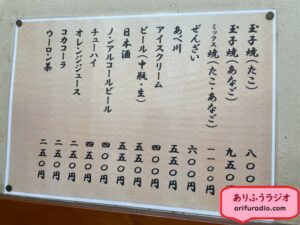 玉子焼(たこ) 八〇〇円
玉子焼(あなご) 九五〇円
ミックス焼(たこ・あなご) 一一〇〇円
ぜんざい 六〇〇円
あべ川 五五〇円
アイスクリーム 二五〇円
ビール(中瓶・生) 五五〇円
日本酒 五五〇円
ノンアルコールビール 四五〇円
チューハイ 四五〇円
オレンジジュース 二五〇円
コカコーラ 二五〇円
ウーロン茶 二五〇円
ありふうラジオ
arifuradio.com